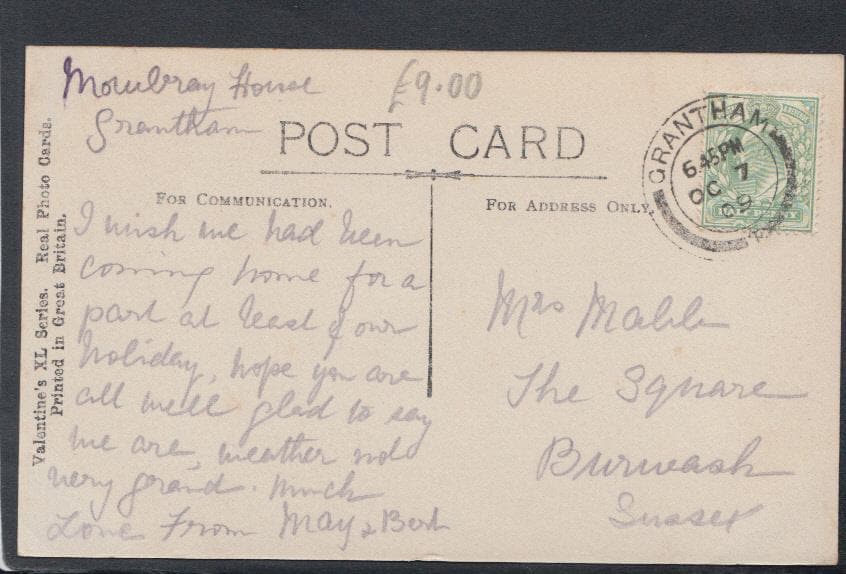 Mowbray House
£9.00
Grantham
POST CARD
GRANTHAM
6.45PM
OC 7
09
FOR COMMUNICATION.
FOR ADDRESS ONLY.
Valentine's XL Series. Real Photo Cards.
Printed in Great Britain.
I wish we had been
coming home for a
part at least of our
holiday, hope you are
all well glad to say
we are, weather not
very grand. Much
Love From May & Bert
Mrs
The Square
Burwash
Sussex